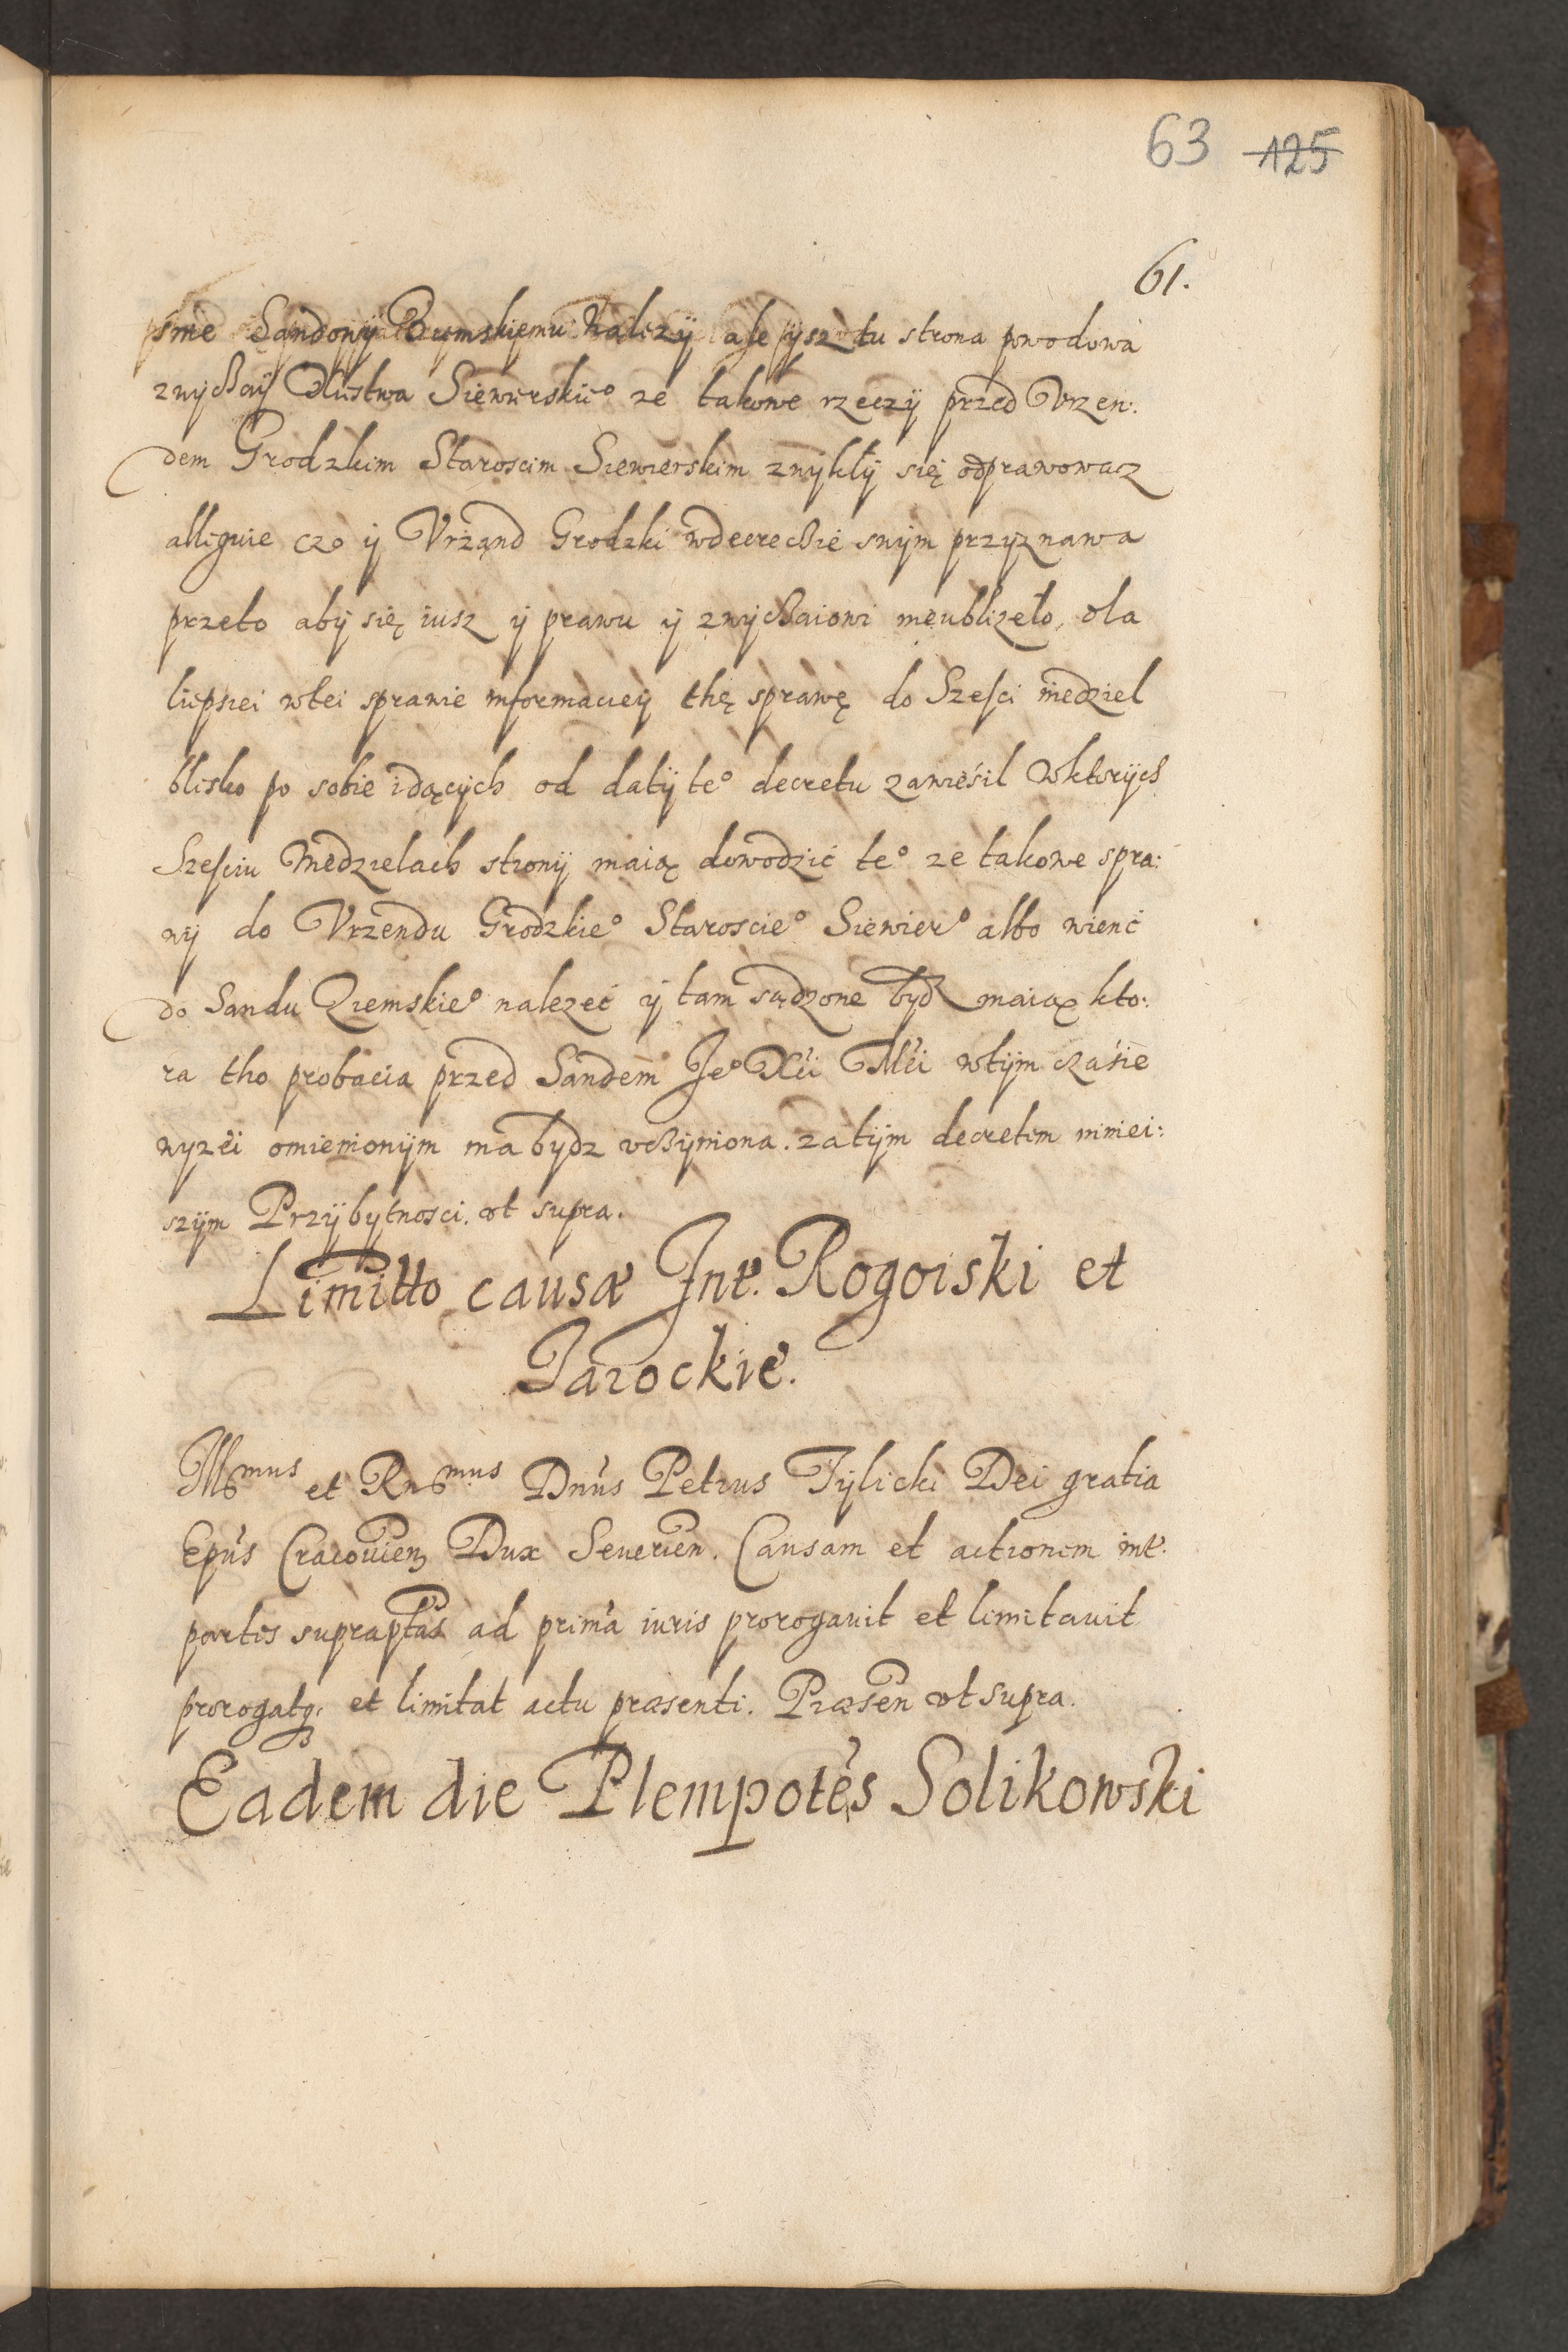 63 125
61.
Sandowy Ziemskiemu Nalezÿ ale ÿsz tu strona powodowa
zwÿchaÿ Xiestwa Siewierskieo ze takowe rzeczÿ przed Vrzen:
dem Grodzkim Staroscim Siewierskim zwÿkłÿ się odprawowacz
alleguie czo ÿ Vrżąnd Grodzki wdecrechie swÿm przÿznawa
przeto abÿ się iusz ÿ prawu ÿ zwÿchaiowi nieublizeło, dla
liepsiei wtei sprawie informacieÿ thę sprawę do Szesci niedziel
blisko po sobie idącÿch od datÿ teo decretu zawieśil wktorÿch
Szesciu Niedzielach stronÿ maią dowodzić teo ze takowe spra:
wÿ do Vrzendu Grodzkieo Staroscieo Siewiero albo wienć
do Sandu Ziemskieo nalezeć ÿ tam sądzone bydz maią kto:
ra tho probacia przed Sandem Jeo Xći Mći wtÿm czasie
wyzei omienionÿm ma bydz vchÿniona. zatÿm decretem niniei:
szÿm Przÿbytnosci. vt supra.
Limitto causæ Int. Rogoiski et
Jarockie.
Illmus et Rndmus Dnus Petrus Tÿlicki Dei gratia
Epus Cracouien Dux Seuerien. Causam et actionem int.
partes supraptas ad prima iuris prorogauit et limitauit
prorogatq, et limitat actu præsenti. Præsen vt supra.
Eadem die Plempotes Solikowski